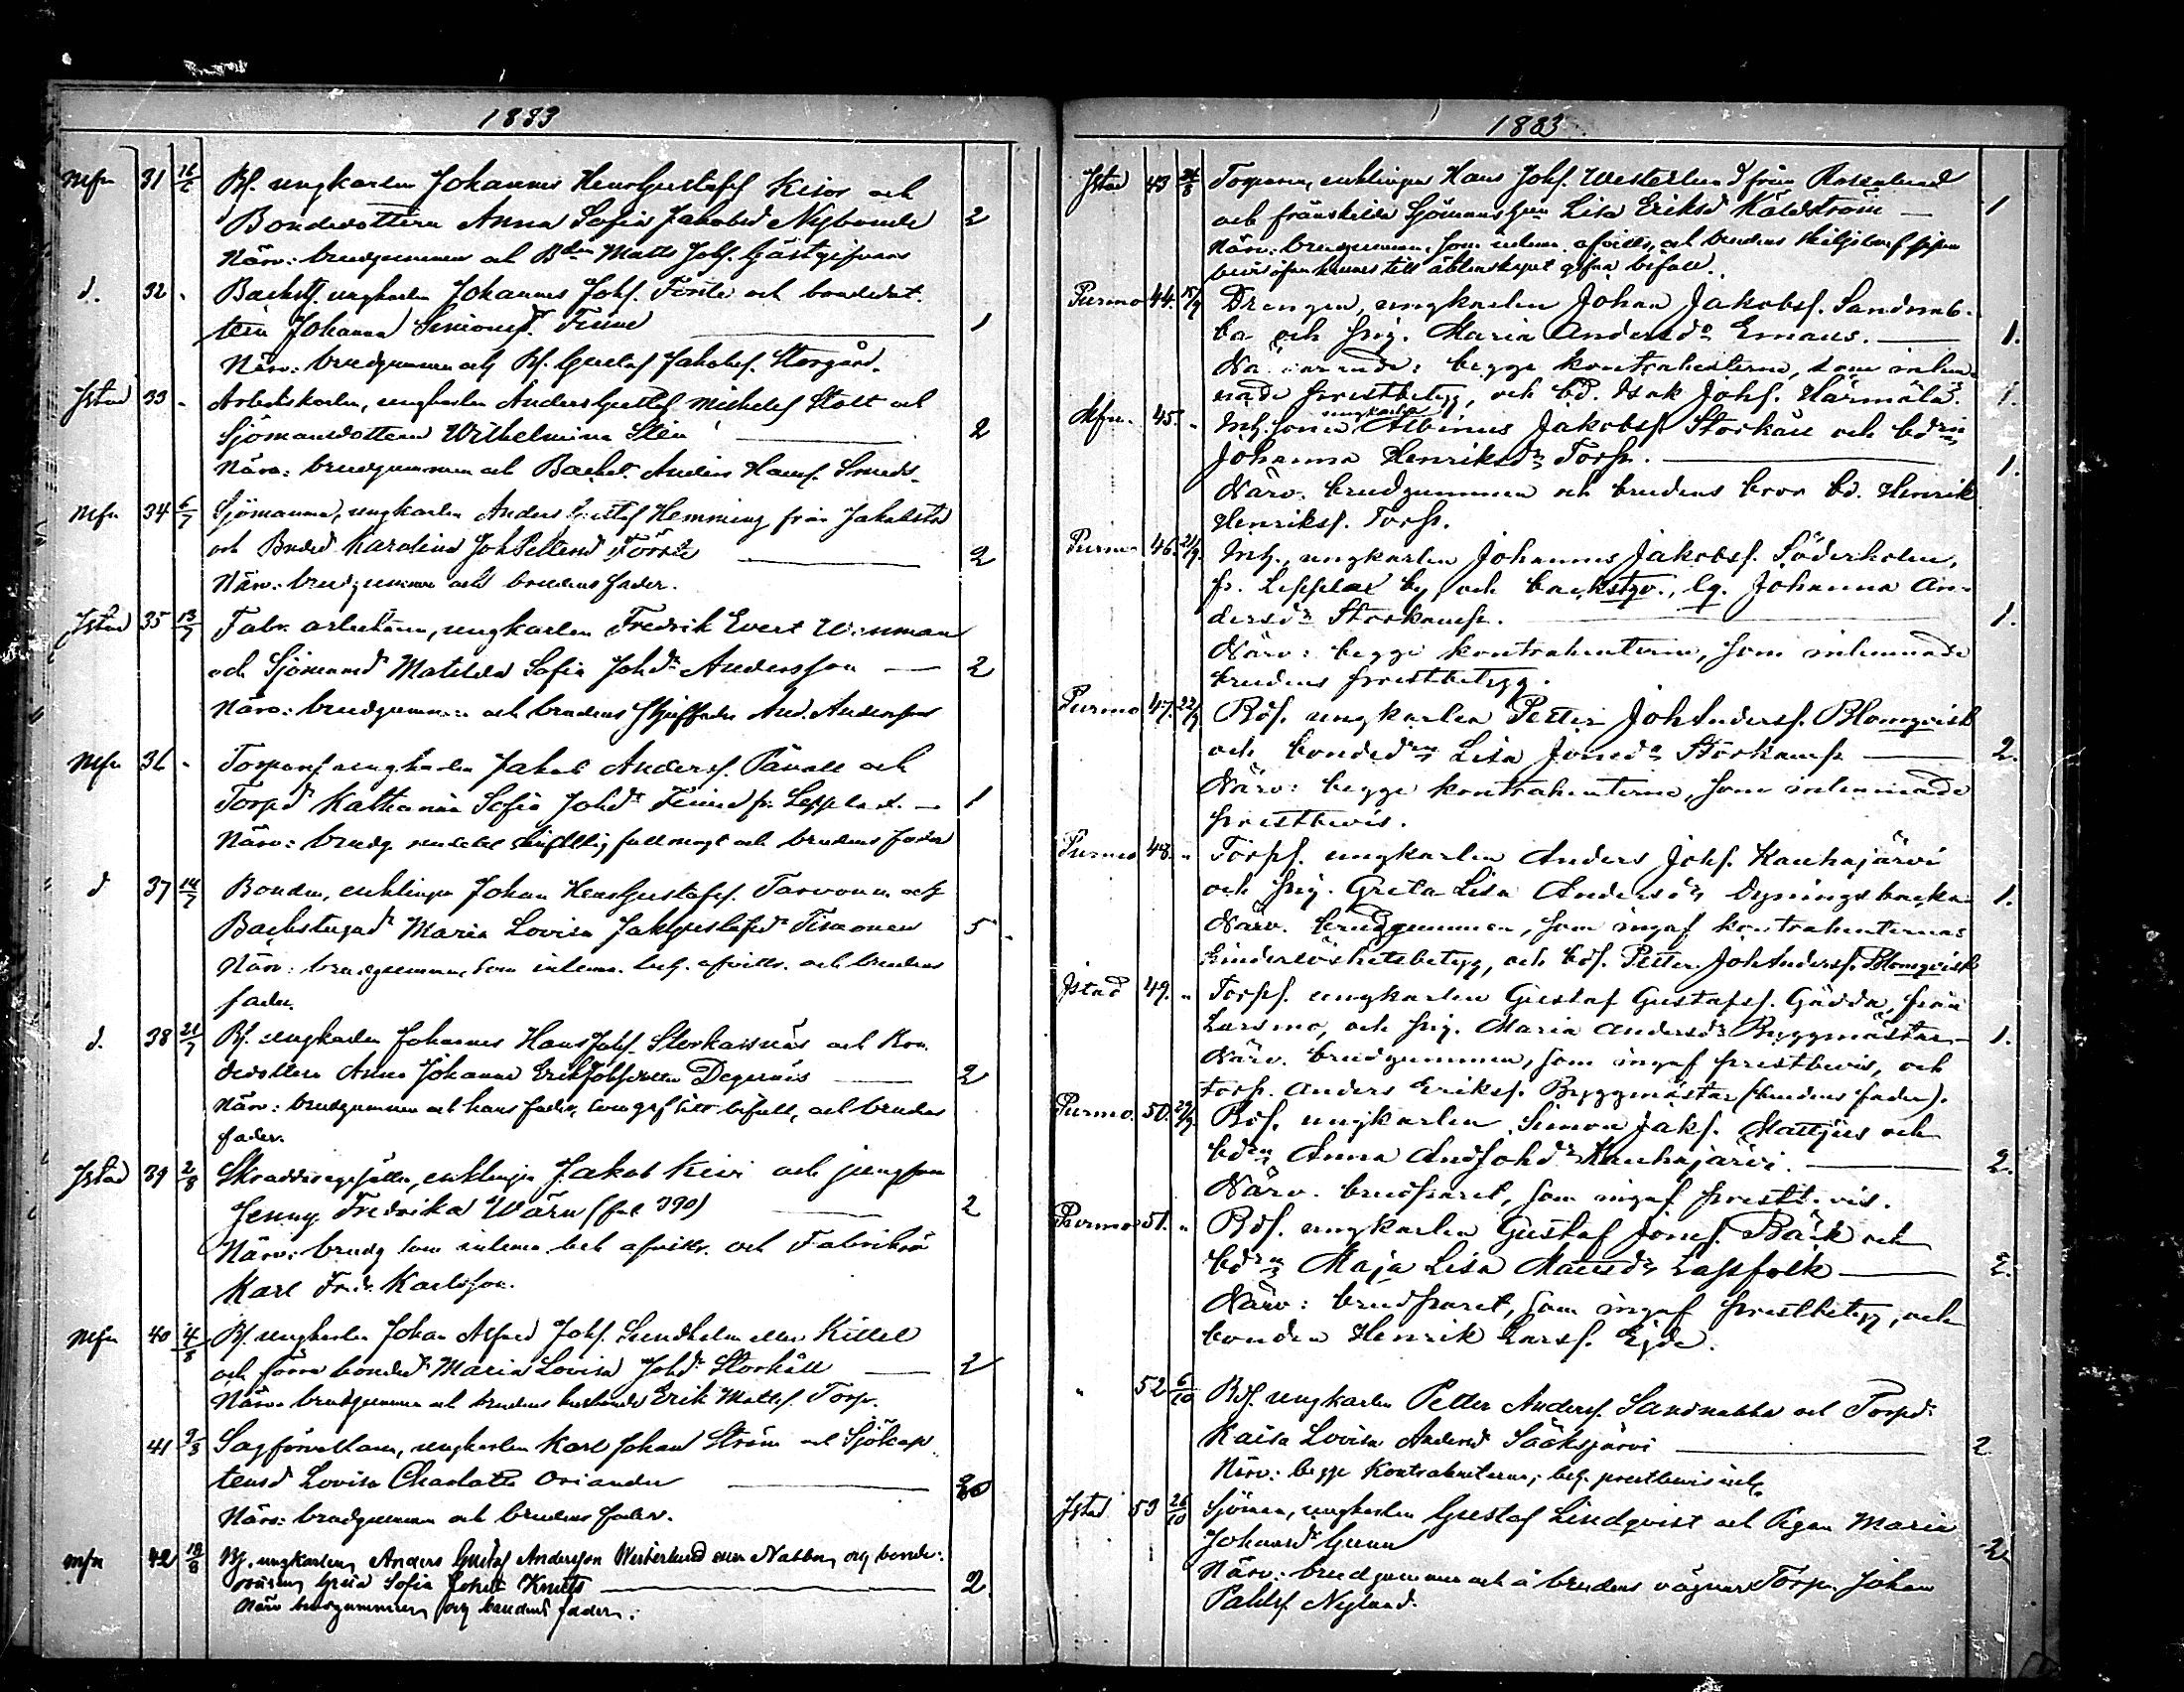 1883
Mfn 31 16/6 Bs. ungkarlen Johannes HenrGustafss Kisor och
Bondedottern Anna Sofia Jakobsd Nybonde 2
Närv: brudgummen och Bden Matts Johs. Gästgifvars
d. 32 - Backstss. ungkarlen Johannes Johs. Förste och bondedot-
tern Johanna Simonsd. Finne 1
Närv: brudgummen och Bs. Gustaf Jakobss. Storgård.
Jstad 33 - Arbetskarlen, ungkarlen Anders Gustaf Michelss Stolt och
Sjömansdottern Wilhelmina Sten 2
Närv: brudgummen och Backst. Anders Hanss. Smeds.
Mfn 34 6/7 Sjömannen, ungkarlen Anders Gustaf Hemming från Jakobstad
och Bonded Karolina JohPettersd Förste 2
Närv: brudgummen och brudens fader.
Jstad 35 13/7 Fabr. arbetaren, ungkarlen Fredrik Evert Winman
och Sjömansd Matilda Sofia Johdr Andersson 2
Närv: brudgummen och brudens styffader And. Andersson
Mfn 36 - Torpares ungkarlen Jakob Anderss. Pävall och
Torpd Katharina Sofia Johdr Finne fr. Lepplax. 1
Närv: brudg medelst skriftlig fullmagt och brudens fader
d 37 14/7 Bonden, enklingen Johan HenrGustafss. Tarvonen och
Backstugud Maria Lovisa JakGustafsdr Tisaonen 5
Närv: brudgummen som inlemn. beh. afvittr. och brudens
fader.
d. 38 21/7 Bs. ungkarlen Johannes HansJohs. Storkassnäs och Bon-
dedottern Anna Johanna ErikJohsdotter Degernäs 2
Närv: brudgummen och hans fader, som gaf sitt bifall, och brudens
fader.
Jstad 39 2/8 Skräddaregesällen, enklingen Jakob Kivi och jungfrun
Jenny Fredrika Wärn (fol 390) 2
Närv: brudg som inlemn beh afvittr. och Fabriksa
Karl Fr. Karlsson.
Mfn 40 4/8 Bs. ungkarlen Johan Alfred Johs. Sundholm eller Kittel
och förra bonded Maria Lovisa Johdr Storkåll 2
Närv. brudgummen och brudens husbonde Erik Mattss. Torp.
41 9/8 Sagförvaltaren, ungkarlen Karl Johan Ström och Sjökap-
tensd Lovisa Charlotta Oriander 20
Närv: brudgummen och brudens fader.
Mfn 42 18/8 Bs. ungkarlen Anders Gustaf Andersson Westerlund eller Nabben och bonde-
Greta Sofia Knuts 2
Närv brudgummen och brudens fader.
1883
Jstad 43 24/8 Torparen, enklingen Hans Johs. Westerlund från Rosenlund
och frånskilda Sjömanshun Lisa Eriksd Käldström 1
Närv: brudgummen, som inlemn. afvittr. och brudens skiljobref
hennes till äktenskapet gifna bifall.
Purmo 44. 15/9 Drengen, ungkarlen Johan Jakobss. Sandnab-
ba och pig. Maria Andersdr Emaus. 1.
Närvarande: begge kontrahenterne, som inlem-
nade prestbetyg, och bd. Isak Johs. Härmälä. 1.
Mfn. 45. - Inh. sonen ungkarlen Albinus Jakobss. Storkåll och bdrn
Johanna Henriksdr Torp. 1.
Närv. brudgummen och brudens bror bd. Henrik
Henrikss. Torp.
Purmo 46. 21/9. Inh., ungkarlen Johannes Jakobss. Söderholm,
fr. Lepplax by och backstgo., lg. Johanna An-
dersdr Storkamp. 1.
Närv: begge kontrahenterne, som inlemnade
brudens prestbetyg.
Purmo 47. 22/9 Bds. ungkarlen Petter JohAnderss. Blomqvist
och bondedrn Lisa Jonsdr Storkamp 2.
Närv: begge kontrahenterne, som inlemnade
prestbevis.
Purmo 48. " Torps. ungkarlen Anders Johs. Kauhajärvi
och pig. Greta Lisa Andersdr Dyningsbacka 1.
Närv. brudgummen, som ingaf kontrahenternas
hinderlöshetsbetyg, och bds. Petter JohAnderss. Blomqvist
Jstad 49. " Torps. ungkarlen Gustaf Gustafss. Gädda, från
Larsmo, och pig. Maria Andersdr Byggmästar 1.
Närv. brudgummen, som ingaf prestbevis, och
torp. Anders Erikss. Byggmästar (brudens fader).
Purmo. 50. 29/9. Bds. ungkarlen Simon Jaks. Mattjus och
bdrn Anna AndJohdr Kauhajärvi. 2.
Närv. brudparet, som ingaf prestbevis.
Purmo 51. " Bds. ungkarlen Gustaf Jonss. Bäck och
bdrn Maja Lisa Mattsdr Lassfolk 2.
Närv: brudparet, som ingaf prestbetyg, och
bonden Henrik Larss. Ejde.
" 52 6/10 Bds. ungkarlen Petter Anderss. Sandnabba och Torpdr
Kaisa Lovisa Andersd Sääksjärvi 2
Närv: begge Kontrahenterne, beh. prestbevis inl.
Jstad 53 26/10 Sjömn, ungkarlen Gustaf Lindqvist och Pigan Maria
Johansdr Gunn 2
Närv: brudgummen och å brudens vägnar Torp. Johan
Pahls. Nylund.